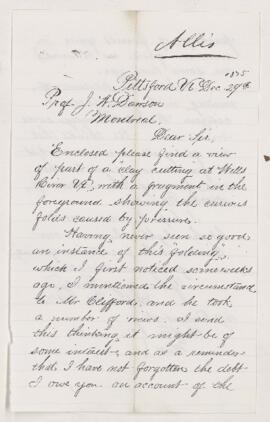 Allis
1875
Pittsford Vt Dec. 29th
Prof. J. W. Dawson
Montreal
Dear Sir,
Enclosed please find a view
of part of a clay cutting at Wells
River Vt., with a fragment in the
foreground showing the curious
folds caused by pressure.
Having never seen so good
an instance of this "folding",
which I first noticed some weeks
ago, I mentioned the circumstance
to Mr Clifford, and he took
a number of views. I send
this thinking it might be of
some interest, and as a reminder
that I have not forgotten the debt
I owe you on account of the